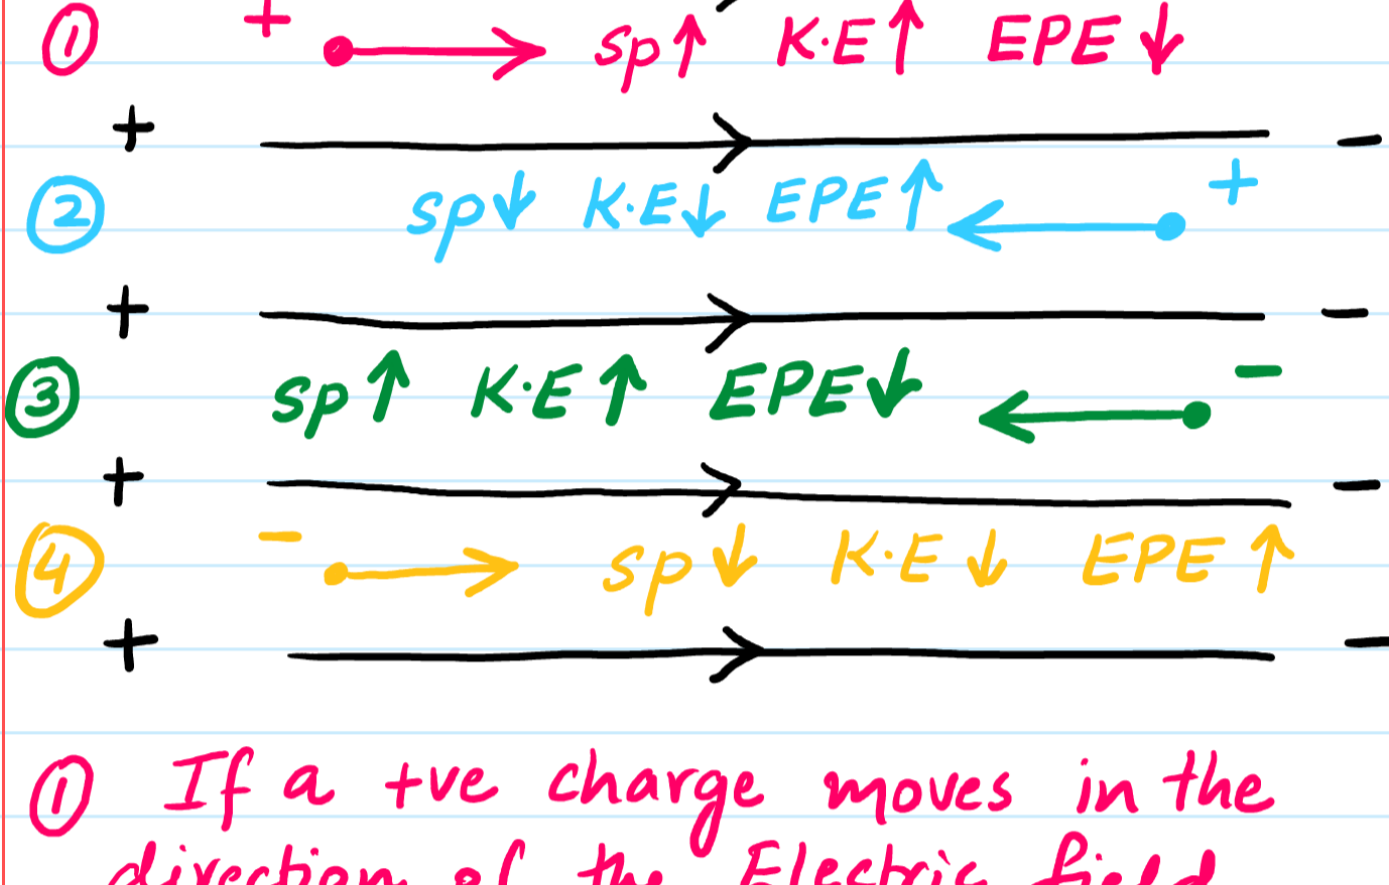 ① + sp↑ K.E↑ EPE↓
+ −
② sp↓ K.E↓ EPE↑ +
+ −
③ sp↑ K.E↑ EPE↓ −
+ −
④ − sp↓ K.E↓ EPE↑
+ −
① If a +ve charge moves in the
direction of the Electric field